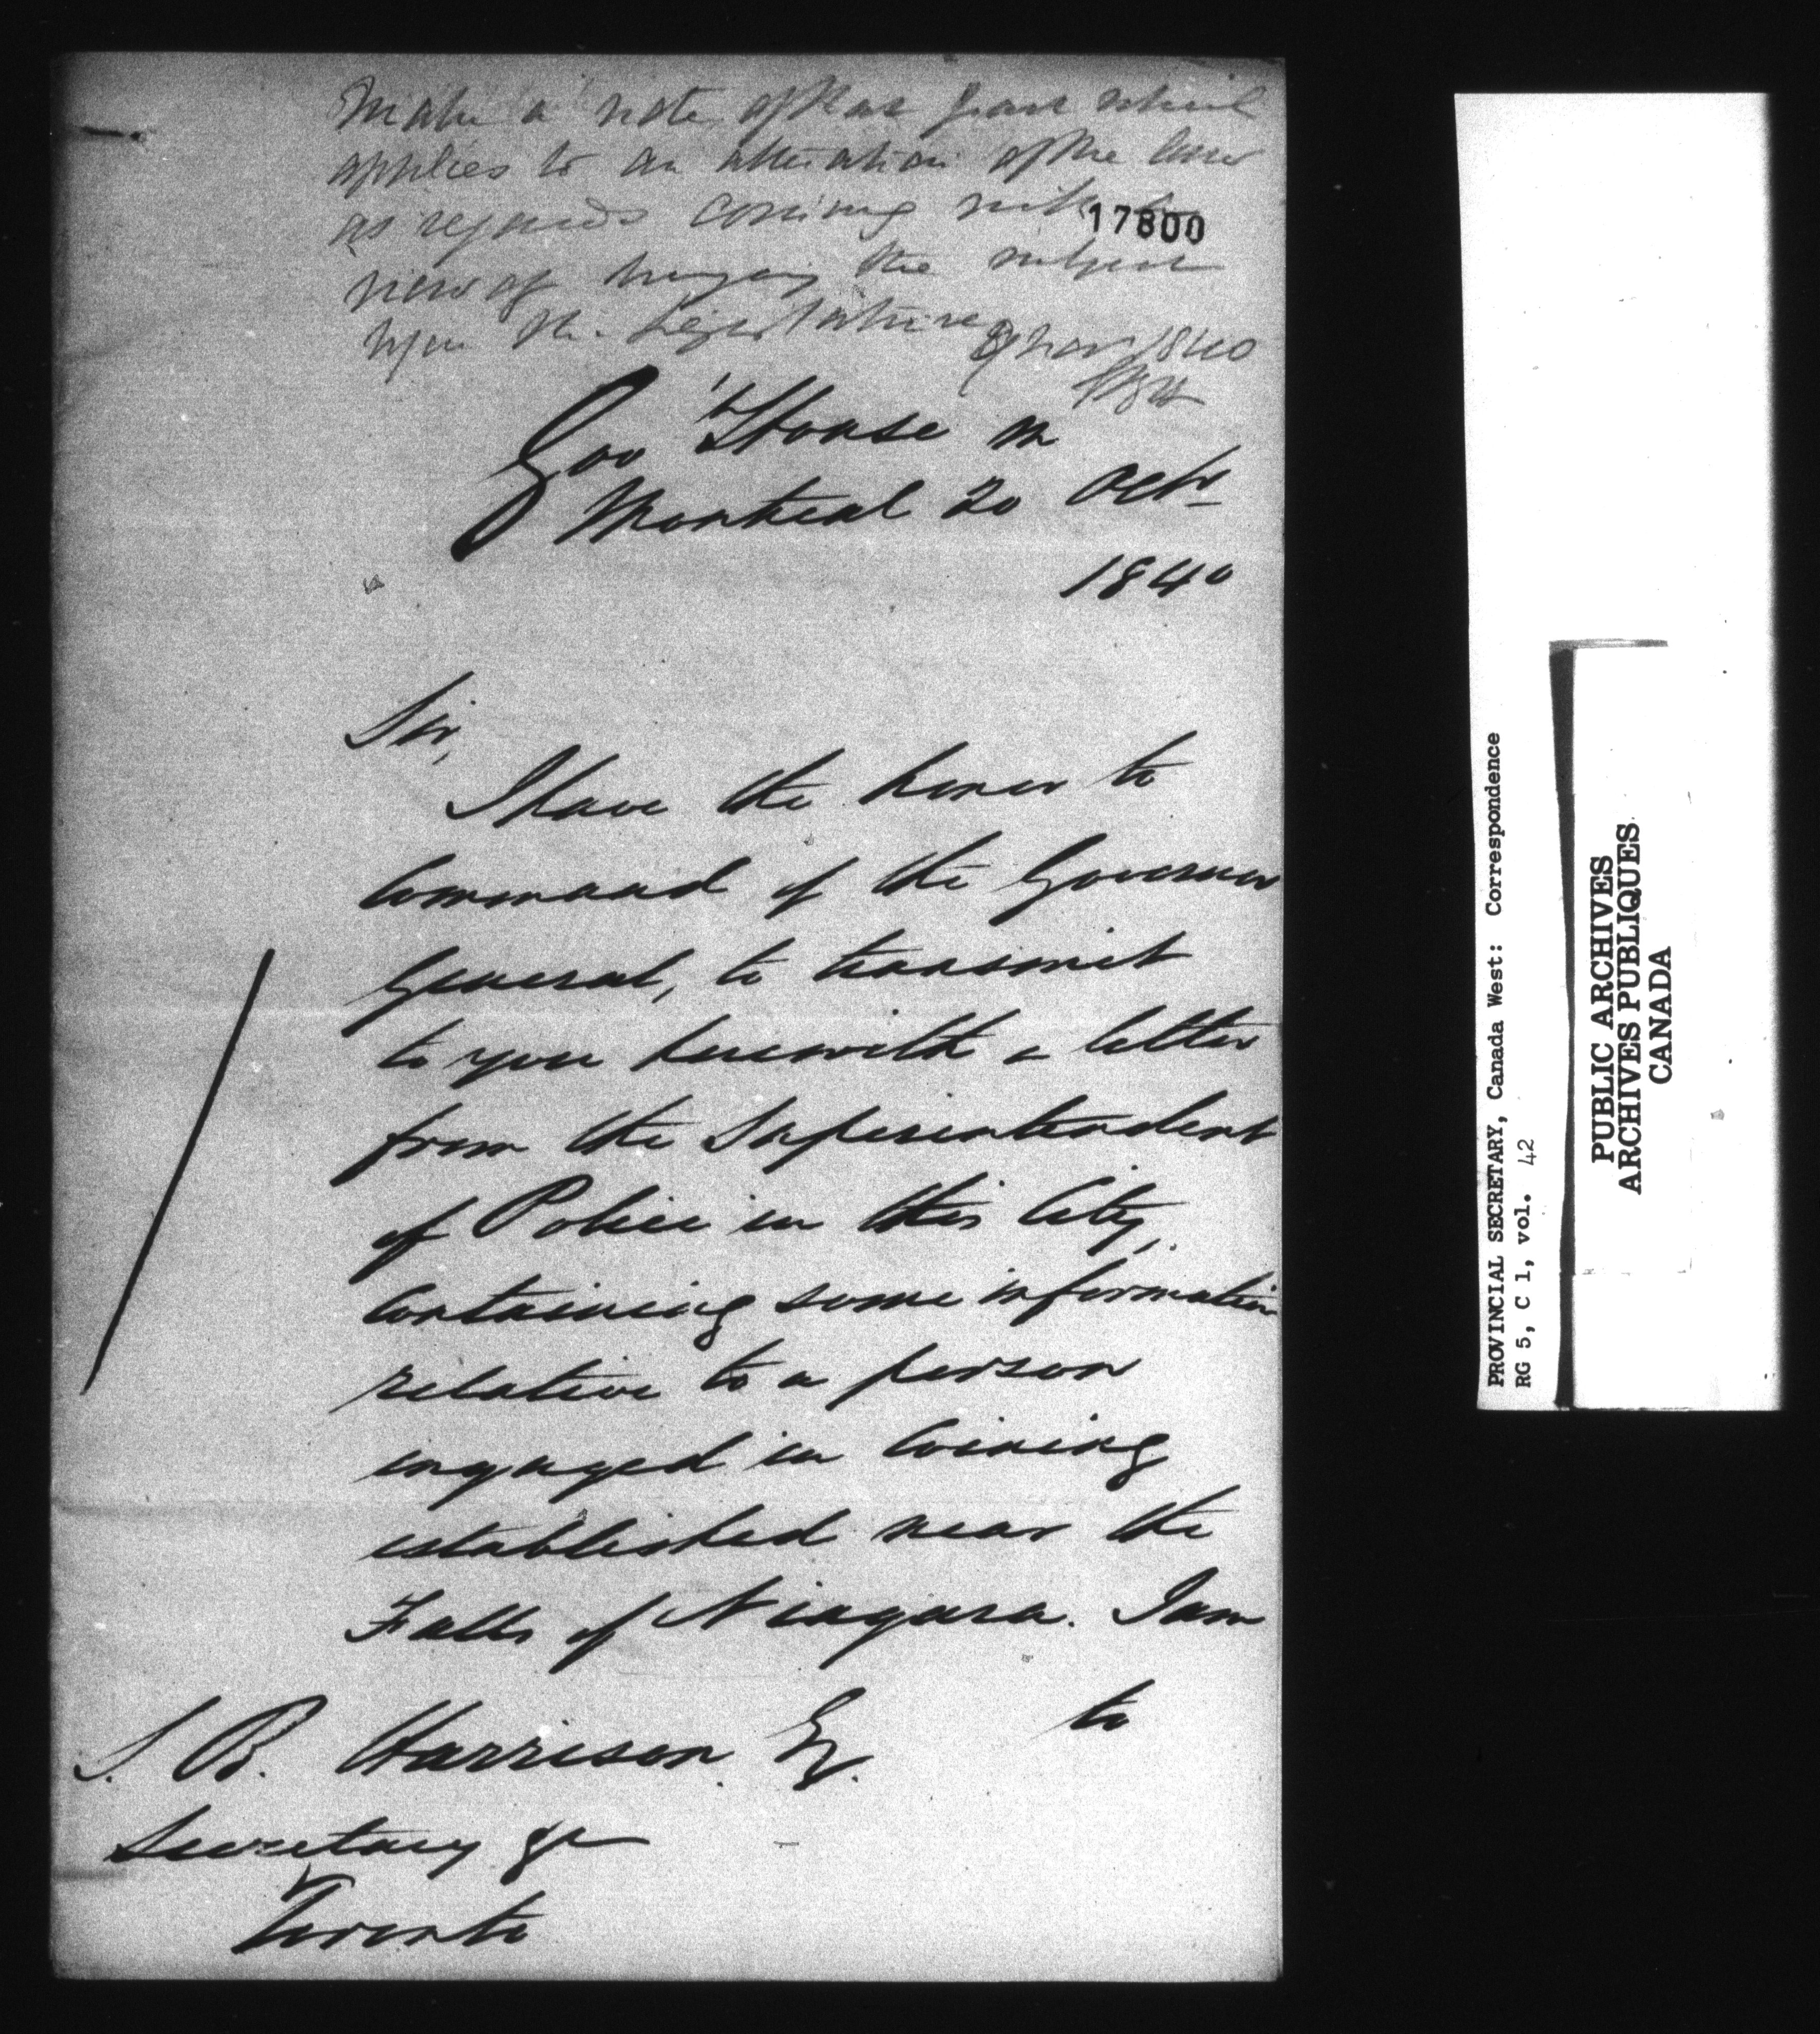 Make a note of that part which
applies to an alteration of the law
as regards coining with a
17800
view of bringing the subject
upon the Legislature
9 Nov 1840
SBH
Gov't House
Montreal 20 Octr
1840
Sir,
I have the honor to
Command of the Governor
General, to transmit
to you herewith a letter
from the Superintendent
of Police in this City,
Containing some information
relative to a person
engaged in Coining
established near the
Falls of Niagara. I am
to
S. B. Harrison Esq.
Secretary &c
Toronto
PROVINCIAL SECRETARY, Canada West: Correspondence
RG 5, C 1, vol. 42
PUBLIC ARCHIVES
ARCHIVES PUBLIQUES
CANADA